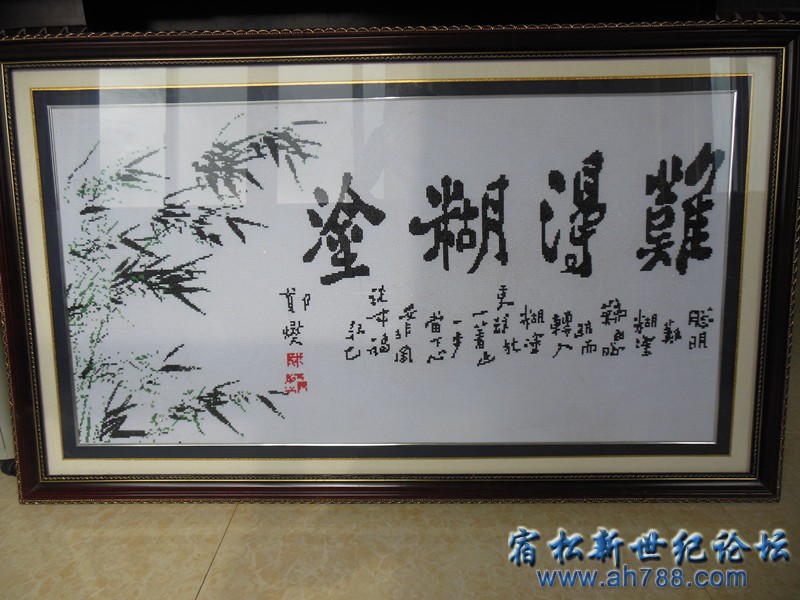 難淂糊塗
聰明
難
糊塗
轉入
糊塗
更難放
一著退
一步
當下心
安非圖
報也
鄭燮
宿松新世纪论坛
www.ah788.com